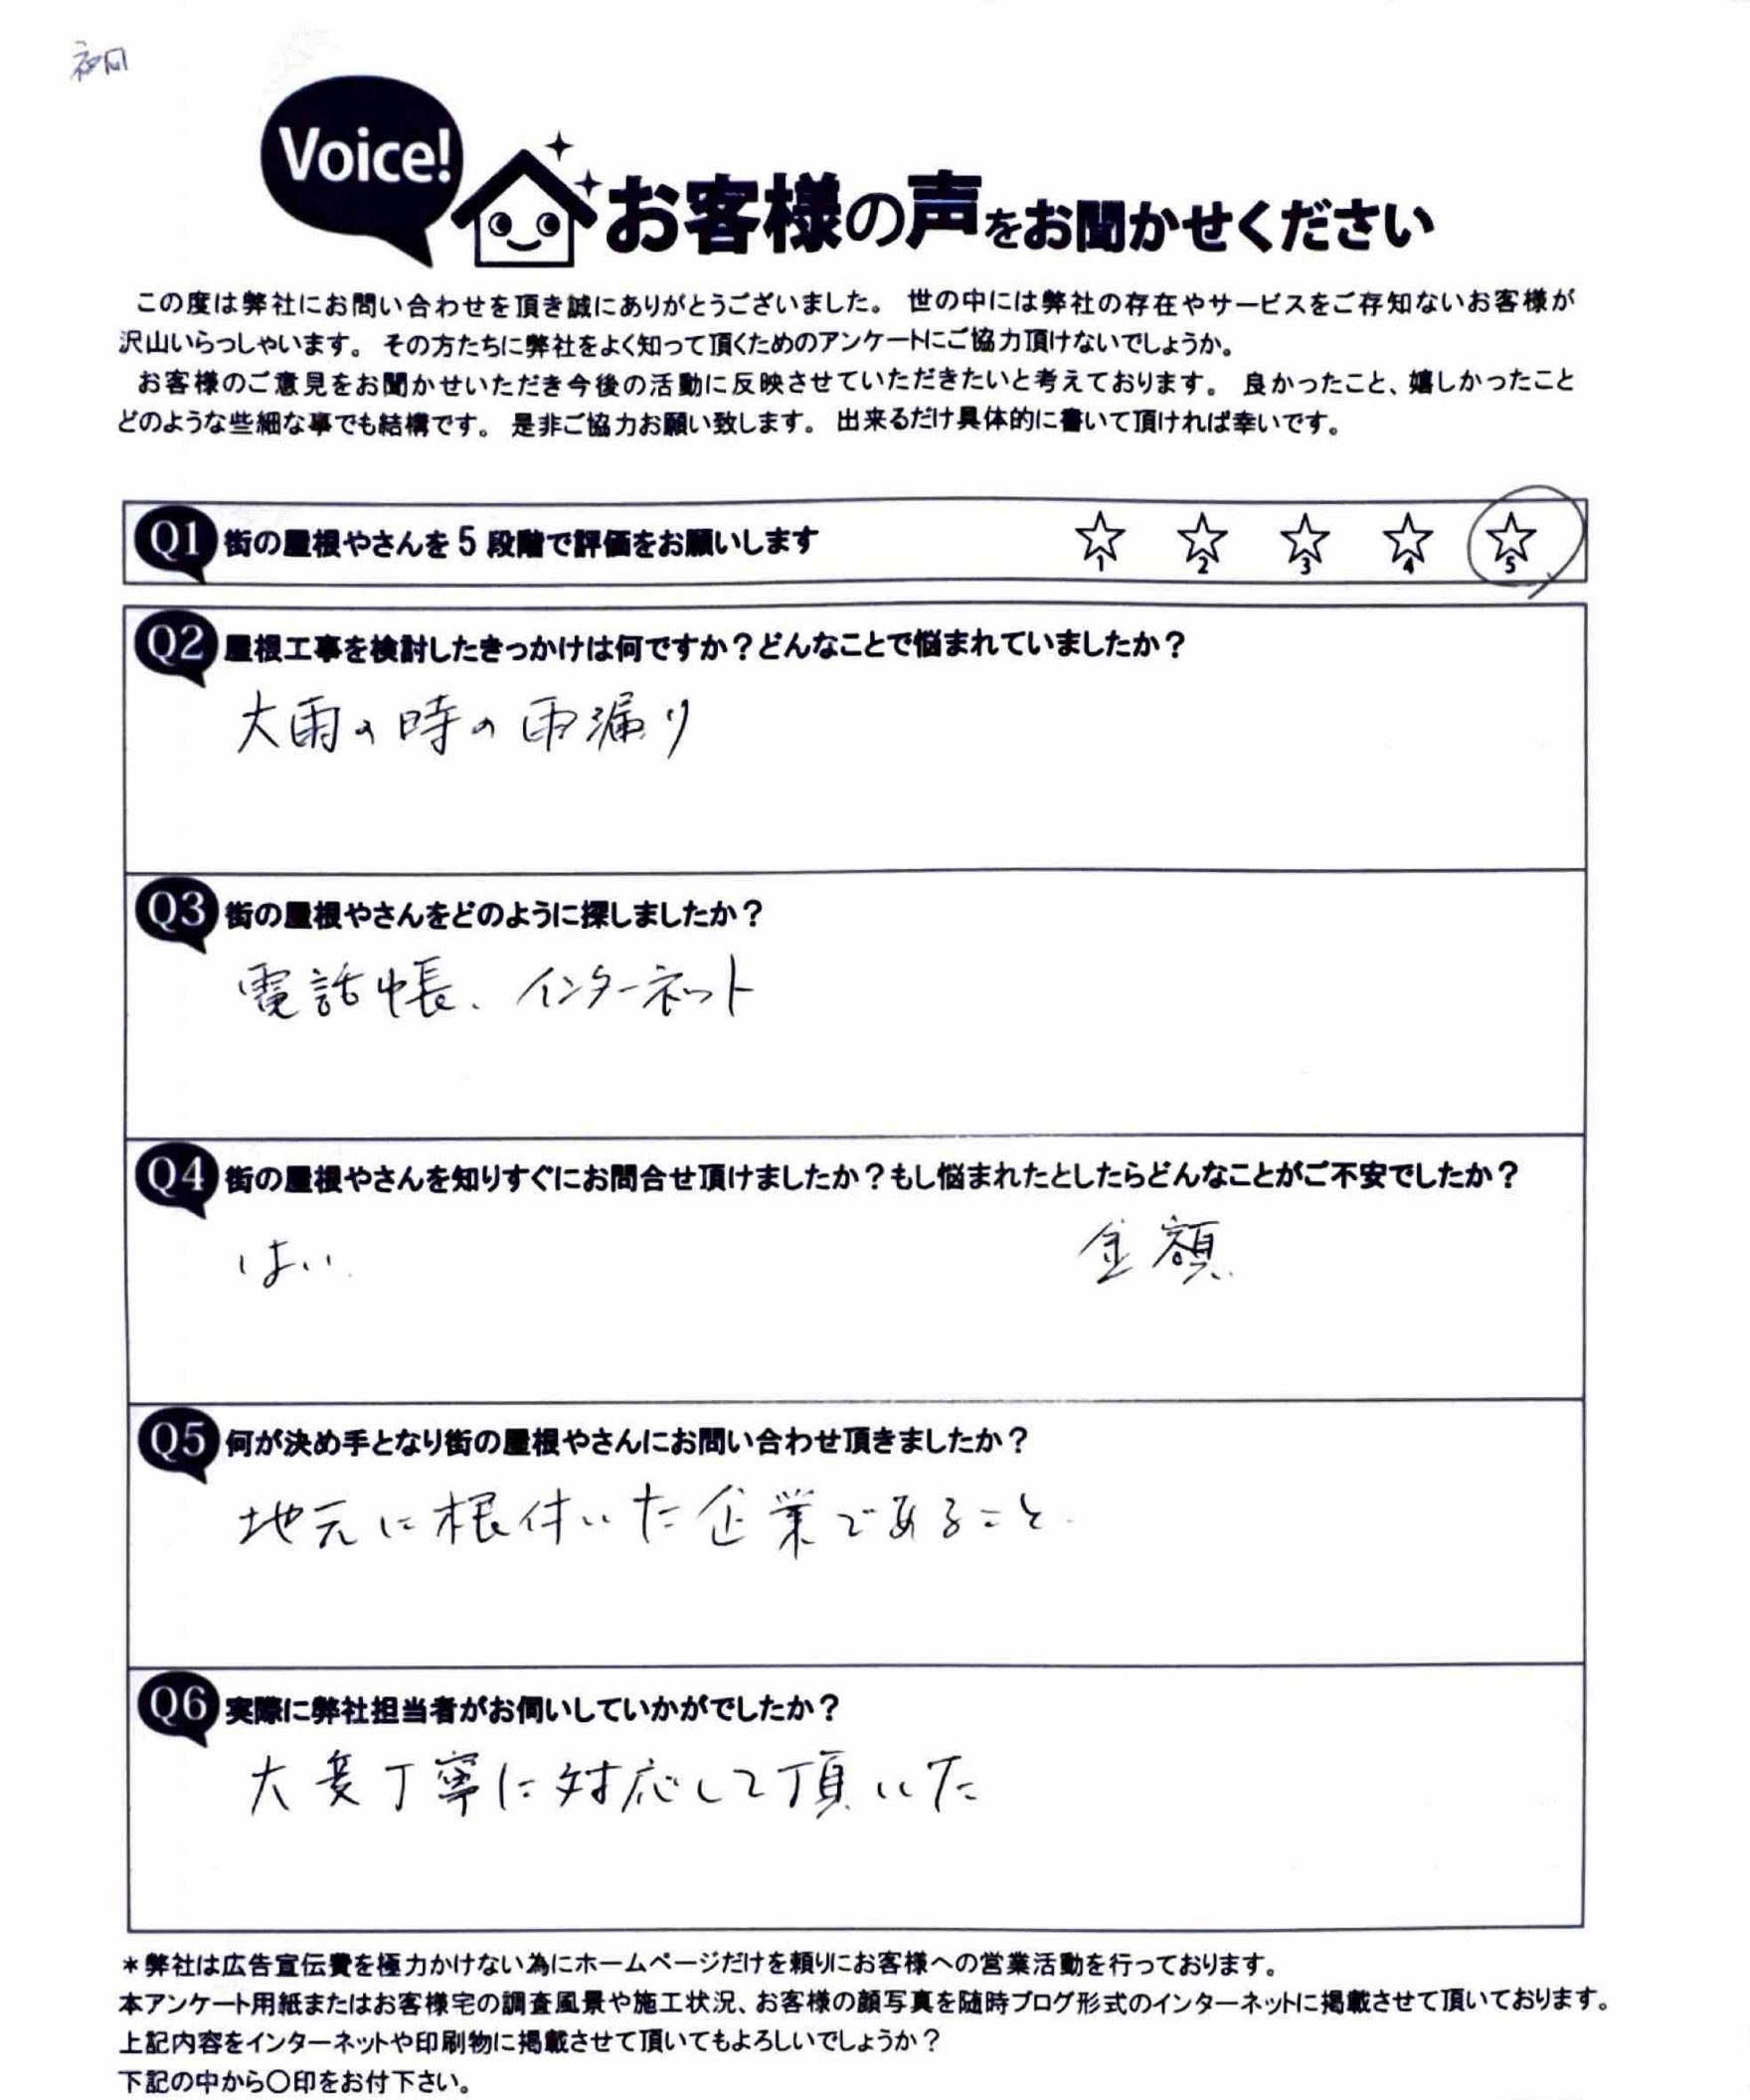 初回
Voice!
お客様の声をお聞かせください
この度は弊社にお問い合わせを頂き誠にありがとうございました。 世の中には弊社の存在やサービスをご存知ないお客様が
沢山いらっしゃいます。 その方たちに弊社をよく知って頂くためのアンケートにご協力頂けないでしょうか。
お客様のご意見をお聞かせいただき今後の活動に反映させていただきたいと考えております。 良かったこと、嬉しかったこと
どのような些細な事でも結構です。 是非ご協力お願い致します。 出来るだけ具体的に書いて頂ければ幸いです。
Q1 街の屋根やさんを5段階で評価をお願いします ☆1 ☆2 ☆3 ☆4 ☆5
Q2 屋根工事を検討したきっかけは何ですか？どんなことで悩まれていましたか？
大雨の時の雨漏り
Q3 街の屋根やさんをどのように探しましたか？
電話帳、インターネット
Q4 街の屋根やさんを知りすぐにお問合せ頂けましたか？もし悩まれたとしたらどんなことがご不安でしたか？
はい. 金額.
Q5 何が決め手となり街の屋根やさんにお問い合わせ頂きましたか？
地元に根付いた企業であること.
Q6 実際に弊社担当者がお伺いしていかがでしたか？
大変丁寧に対応して頂いた
＊弊社は広告宣伝費を極力かけない為にホームページだけを頼りにお客様への営業活動を行っております。
本アンケート用紙またはお客様宅の調査風景や施工状況、お客様の顔写真を随時ブログ形式のインターネットに掲載させて頂いております。
上記内容をインターネットや印刷物に掲載させて頂いてもよろしいでしょうか？
下記の中から〇印をお付下さい。